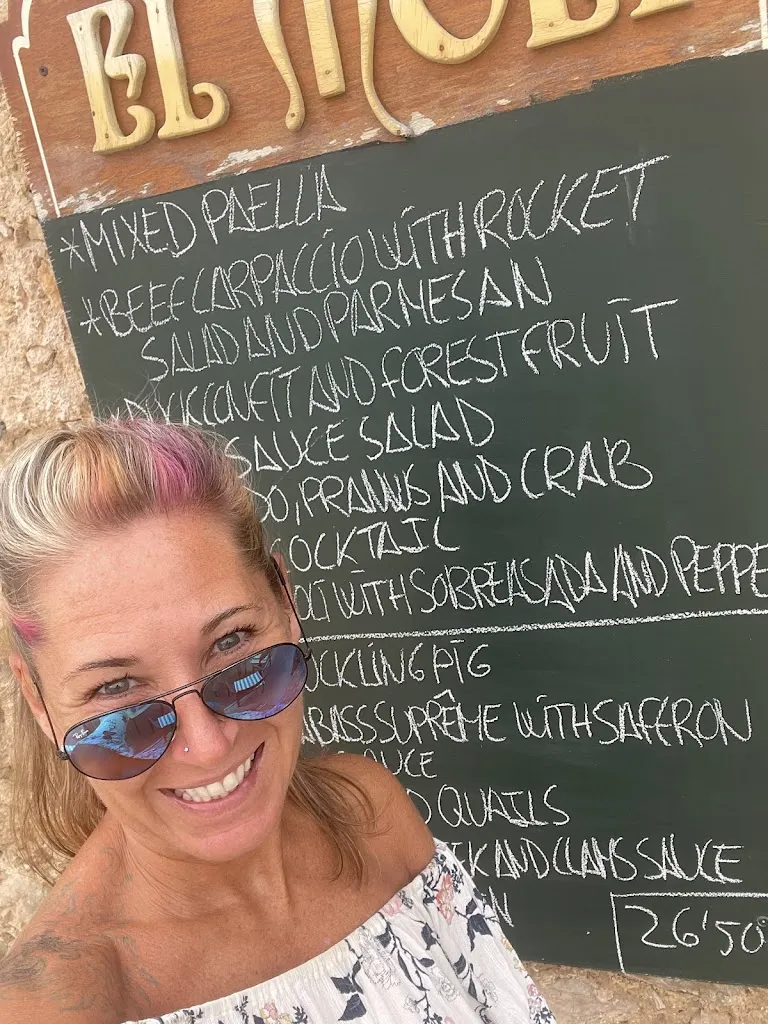 EL MOLI
*MIXED PAELLA
*BEEF CARPACCIO WITH ROCKET
SALAD AND PARMESAN
CONFIT AND FOREST FRUIT
SAUCE SALAD
PRAWNS AND CRAB
OCKTAIL
WITH SOBREASADA AND PEPPE
UCKLING PIG
ABASS SUPRÊME WITH SAFFRON
UCE
QUAILS
EK AND CLAMS SAUCE
26'50
Ray-Ban